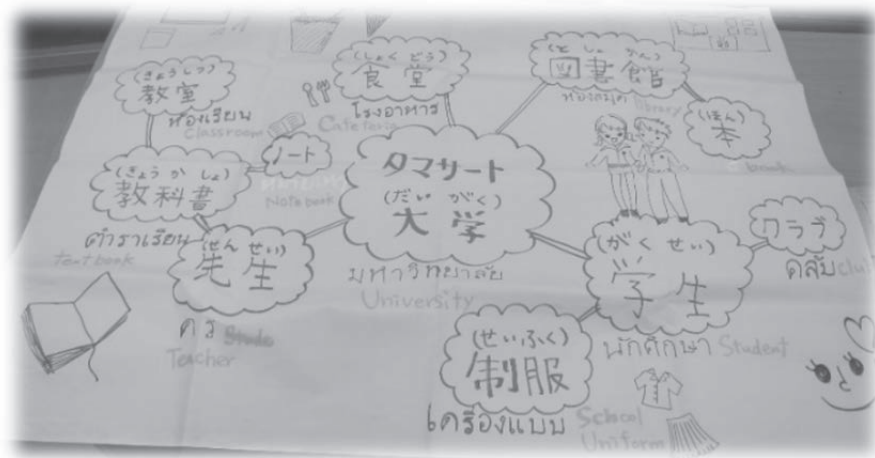 (きょうしつ)
教室
ห้องเรียน
Classroom
(しょくどう)
食堂
โรงอาหาร
Cafeteria
(としょかん)
図書館
ห้องสมุด library
(ほん)
本
book
(きょうかしょ)
教科書
ตำราเรียน
textbook
ノート
Notebook
タマサート
(だいがく)
大学
มหาวิทยาลัย
University
(せんせい)
先生
ครู
Teacher
(がくせい)
学生
นักศึกษา Student
クラブ
คลับ club
(せいふく)
制服
เครื่องแบบ School
Uniform